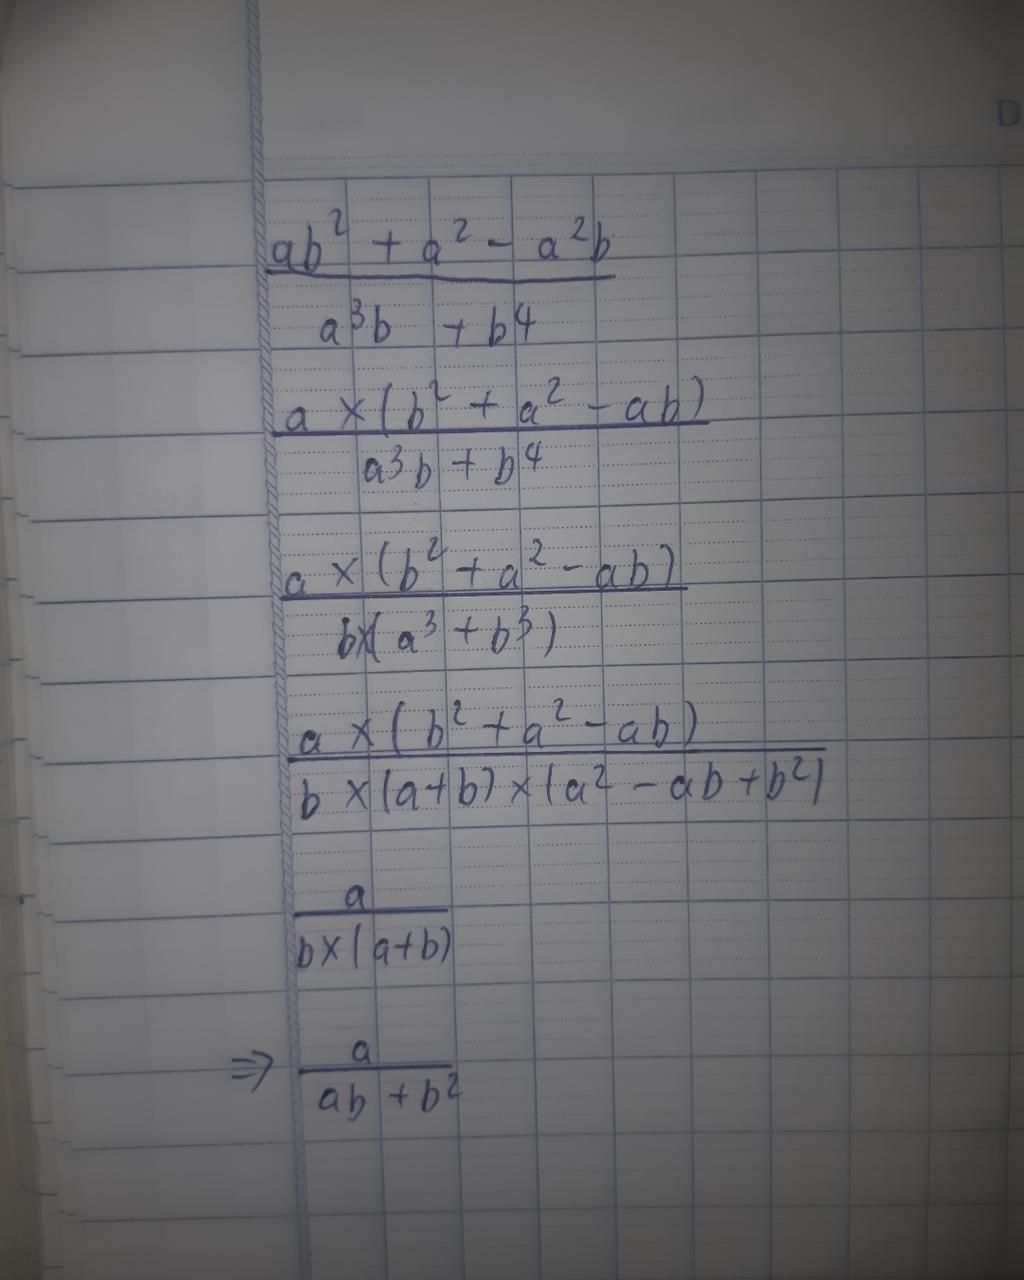 D
ab² + a² - a²b
a³b + b⁴
a × (b² + a² - ab)
a³b + b⁴
a × (b² + a² - ab)
b×(a³ + b³)
a × (b² + a² - ab)
b × (a+b) × (a² - ab + b²)
a
b×(a+b)
⇒ a
ab + b²